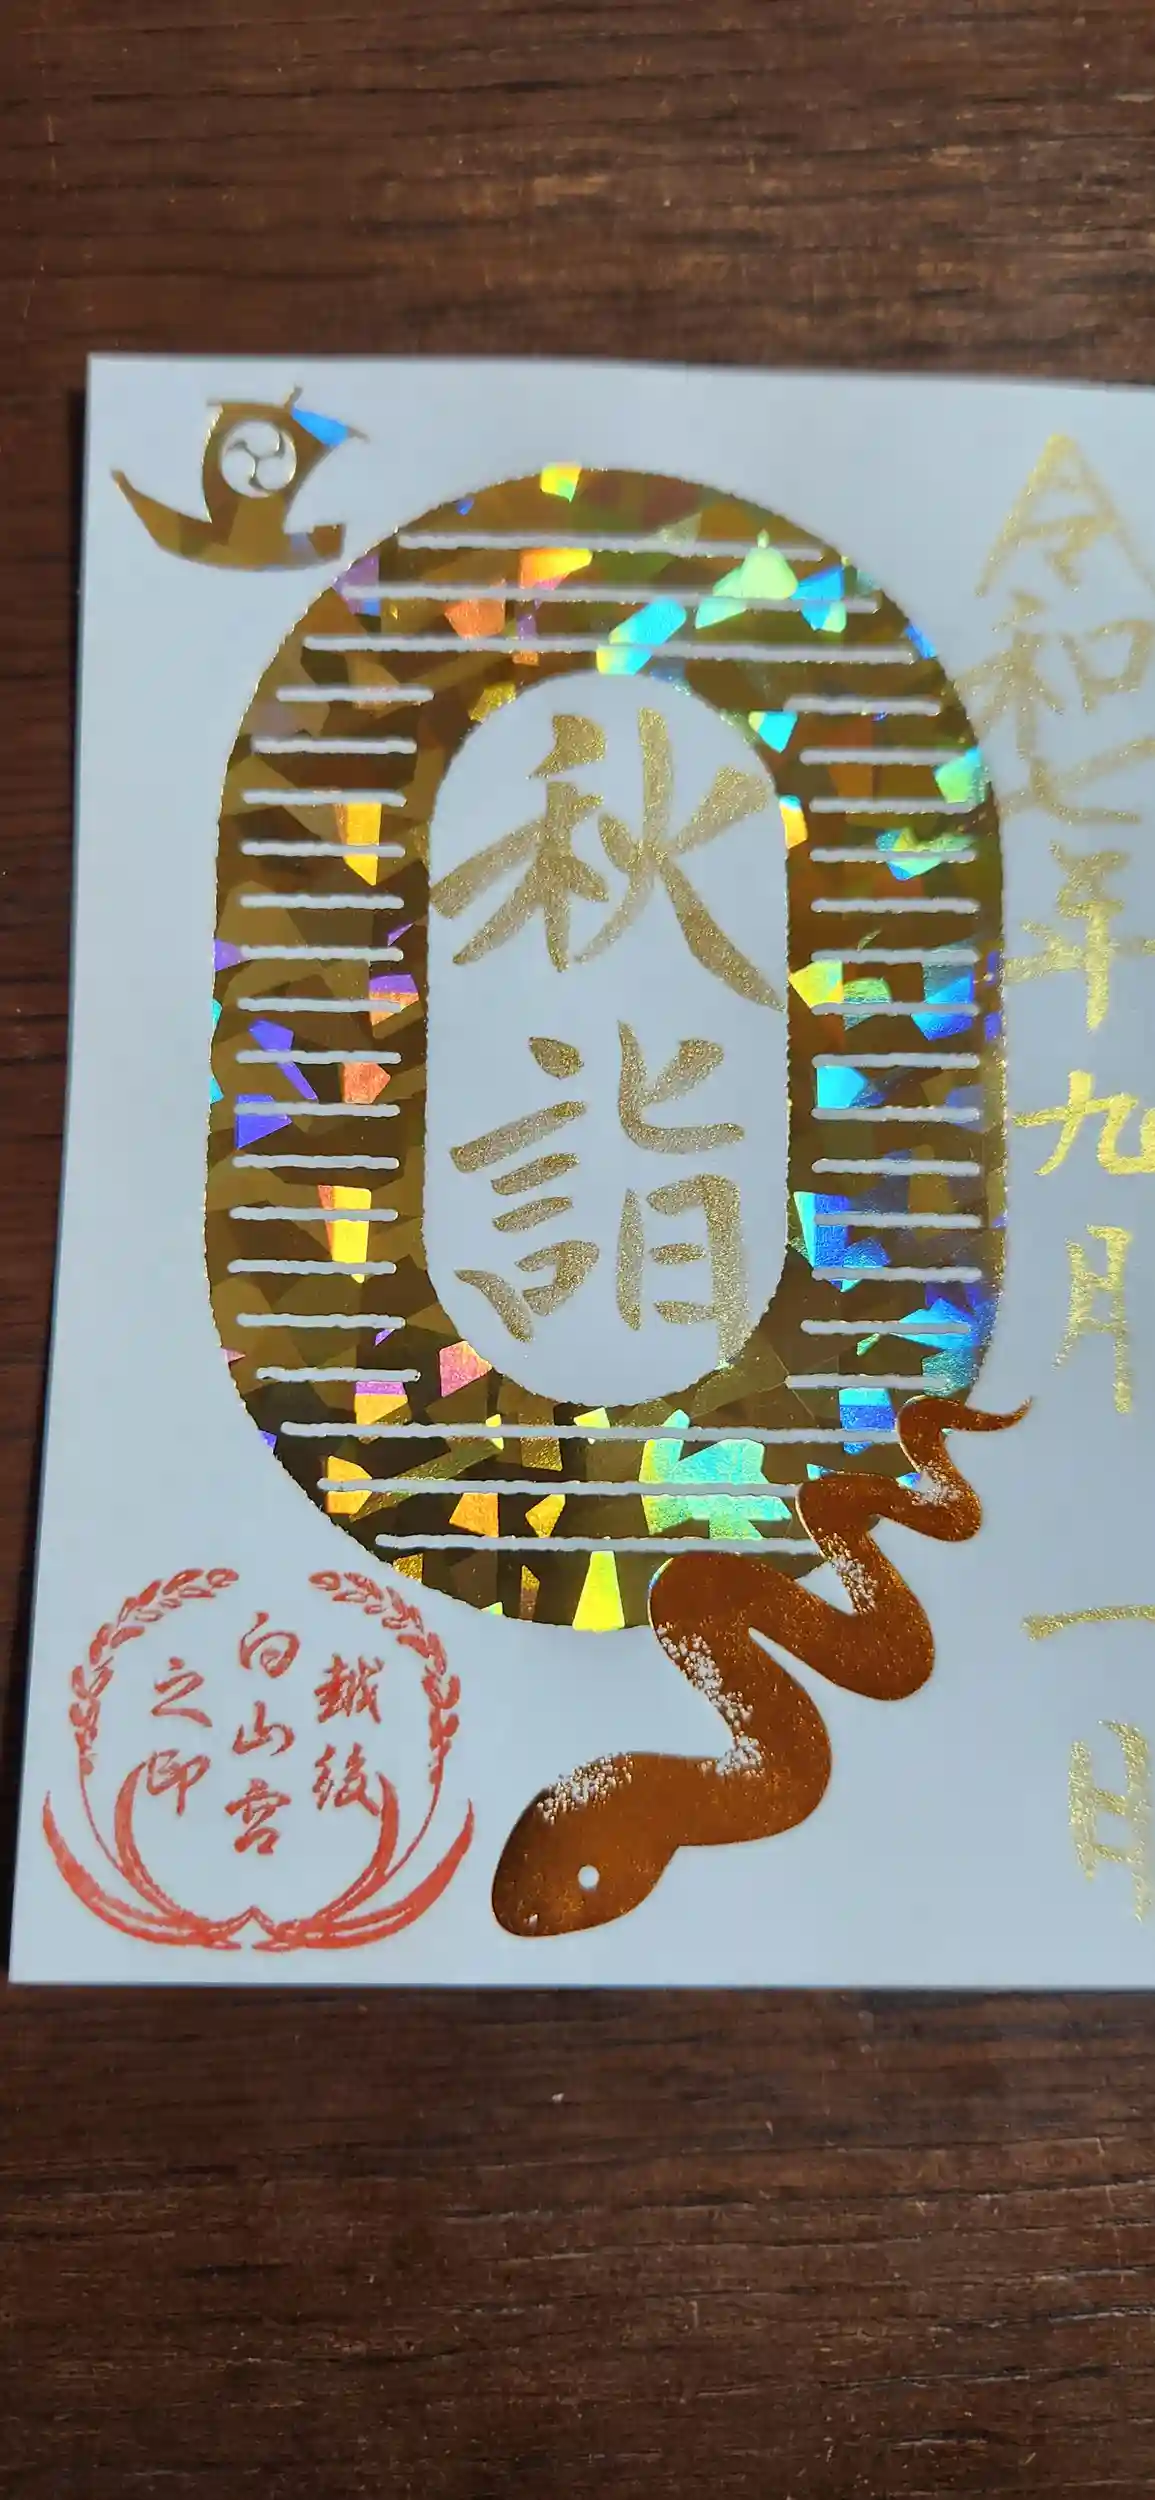 令和七年九月一
秋詣
越後
白山宮
之印